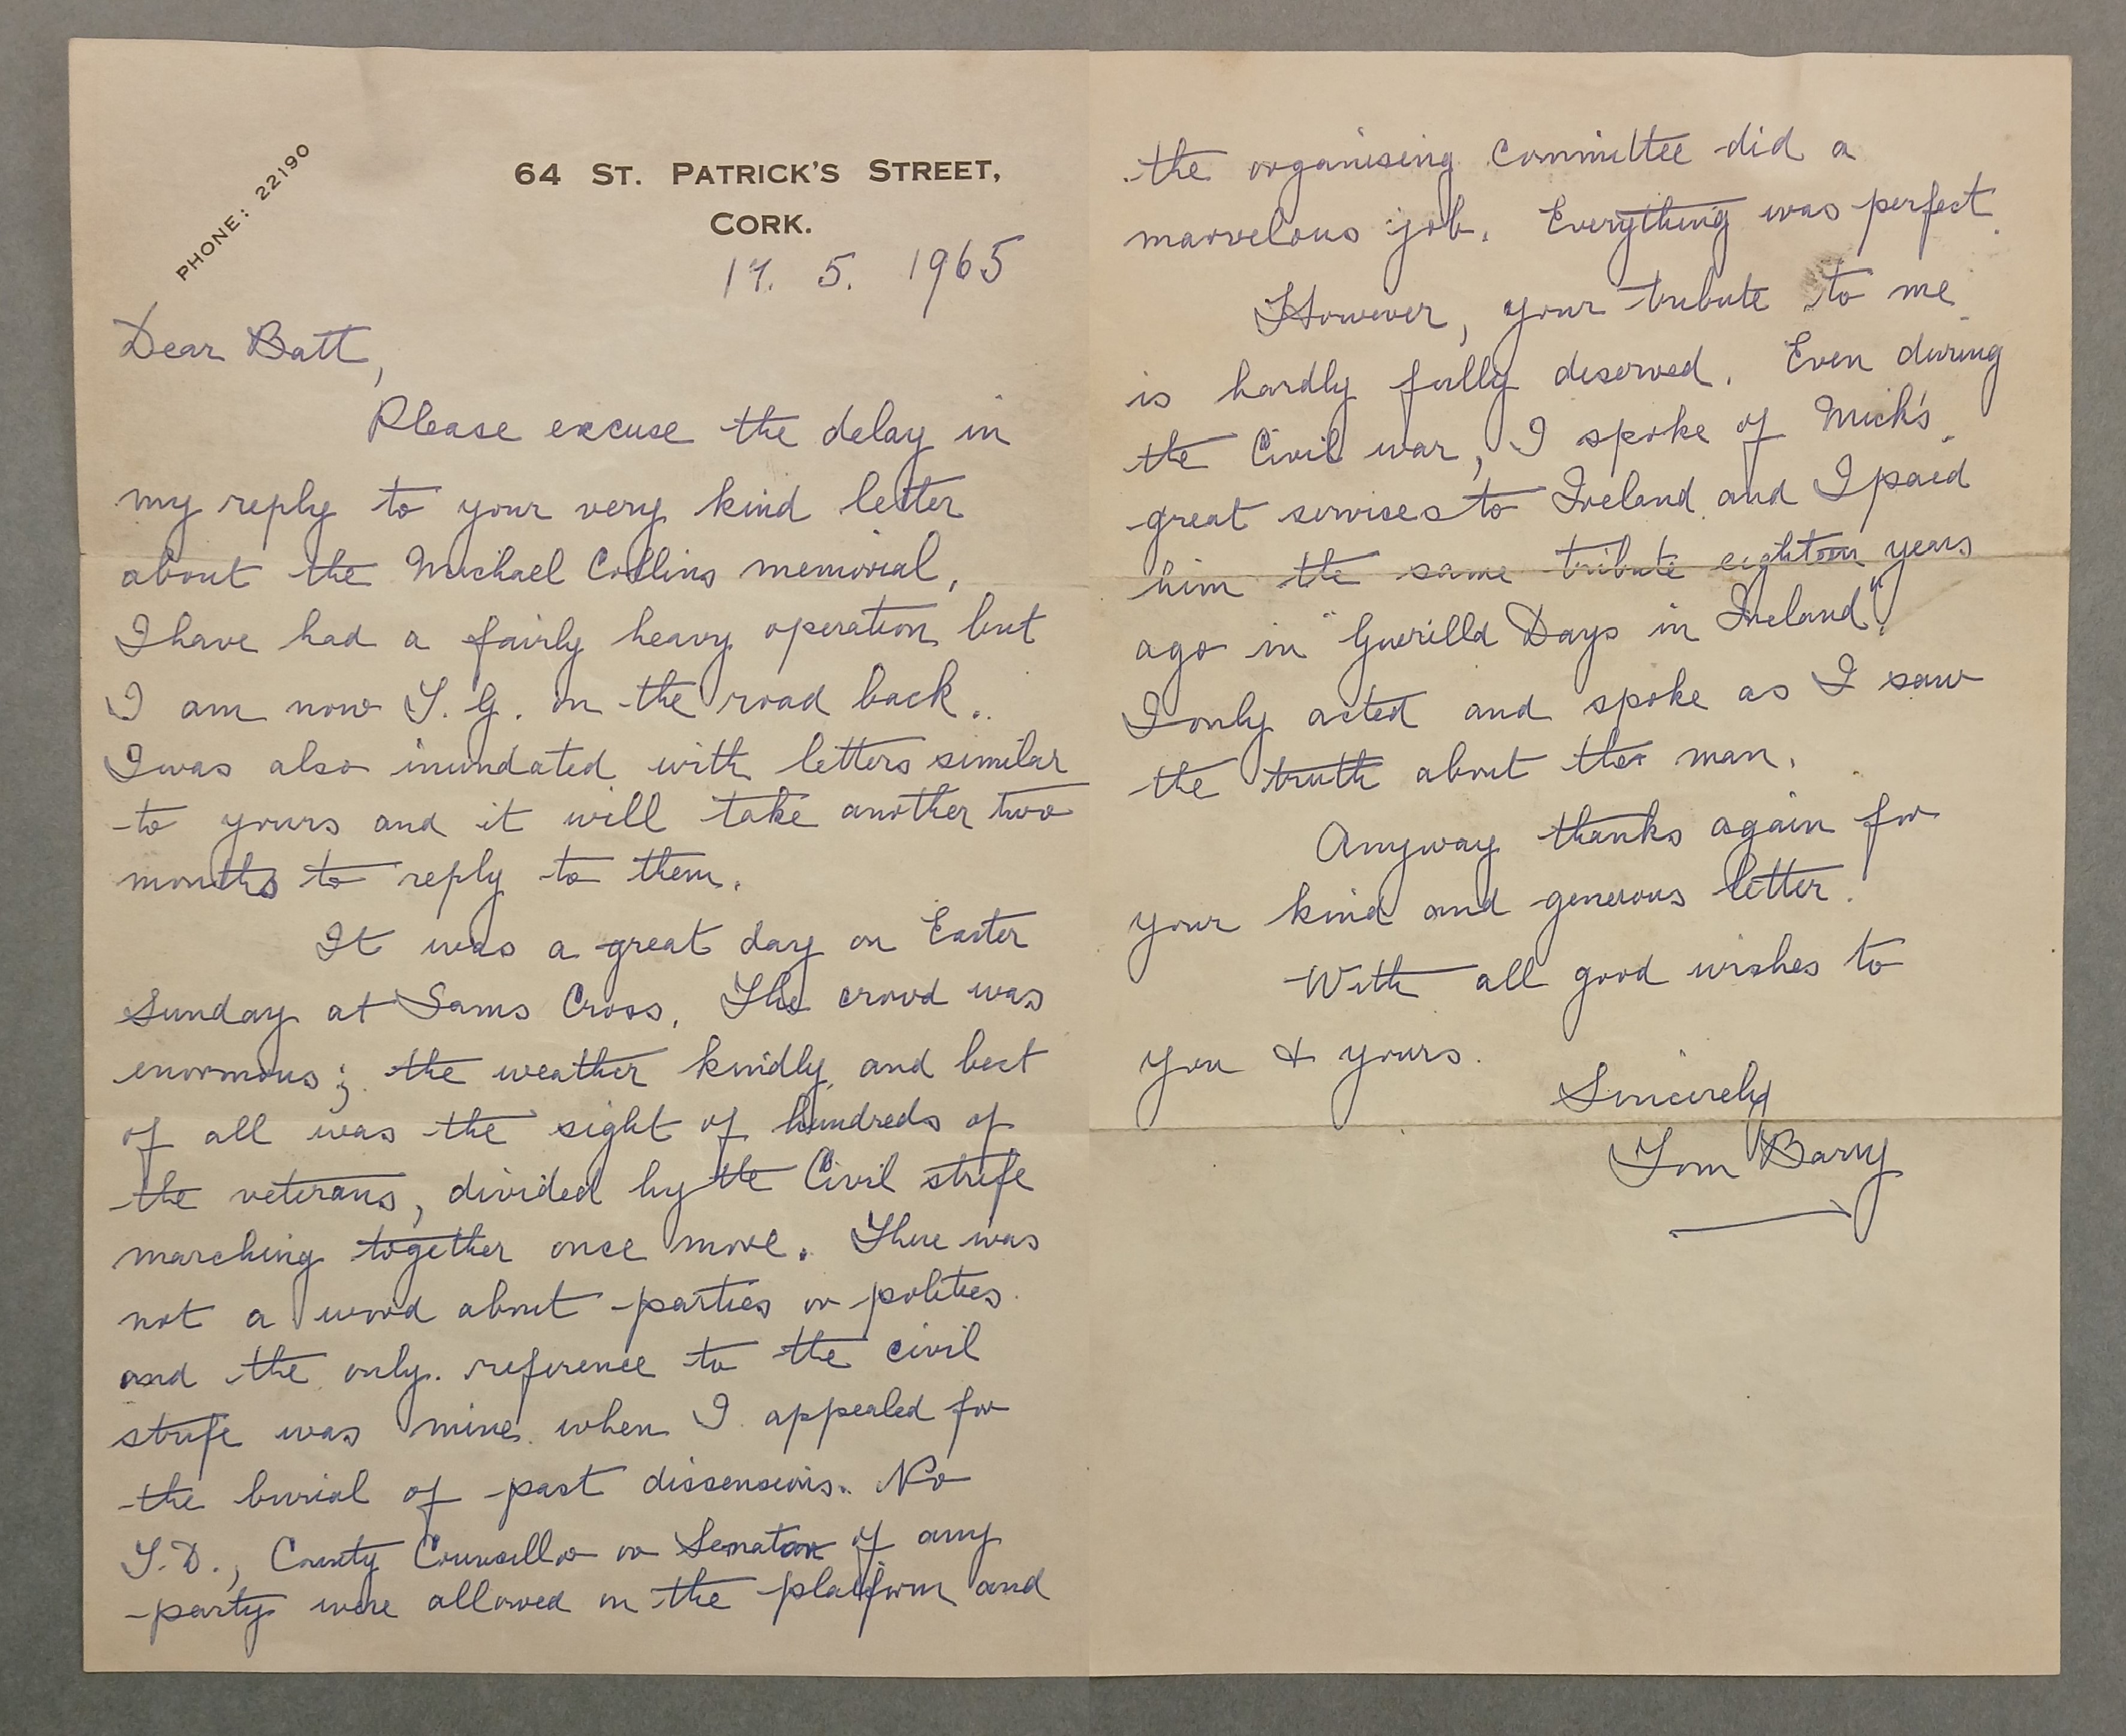 PHONE: 22190
64 ST. PATRICK'S STREET,
CORK.
17. 5. 1965
Dear Batt,
Please excuse the delay in
my reply to your very kind letter
about the Michael Collins memorial,
I have had a fairly heavy operation but
I am now T. G. on the road back..
I was also inundated with letters similar
to yours and it will take another two
months to reply to them.
It was a great day on Easter
Sunday at Sams Cross. The crowd was
enormous; the weather kindly and best
of all was the sight of hundreds of
the veterans, divided by the Civil strife
marching together once more. There was
not a word about parties or politics
and the only reference to the civil
strife was mine when I appealed for
the burial of past dissensions. No
T.D., County Councillor or Senator of any
party were allowed on the platform and
the organising committee did a
marvelous job. Everything was perfect.
However, your tribute to me
is hardly fully deserved. Even during
the Civil war, I spoke of Mick's
great services to Ireland and I paid
him the same tribute eighteen years
ago in "Guerilla Days in Ireland".
I only acted and spoke as I saw
the truth about the man.
Anyway thanks again for
your kind and generous letter.
With all good wishes to
you & yours.
Sincerely
Tom Barry